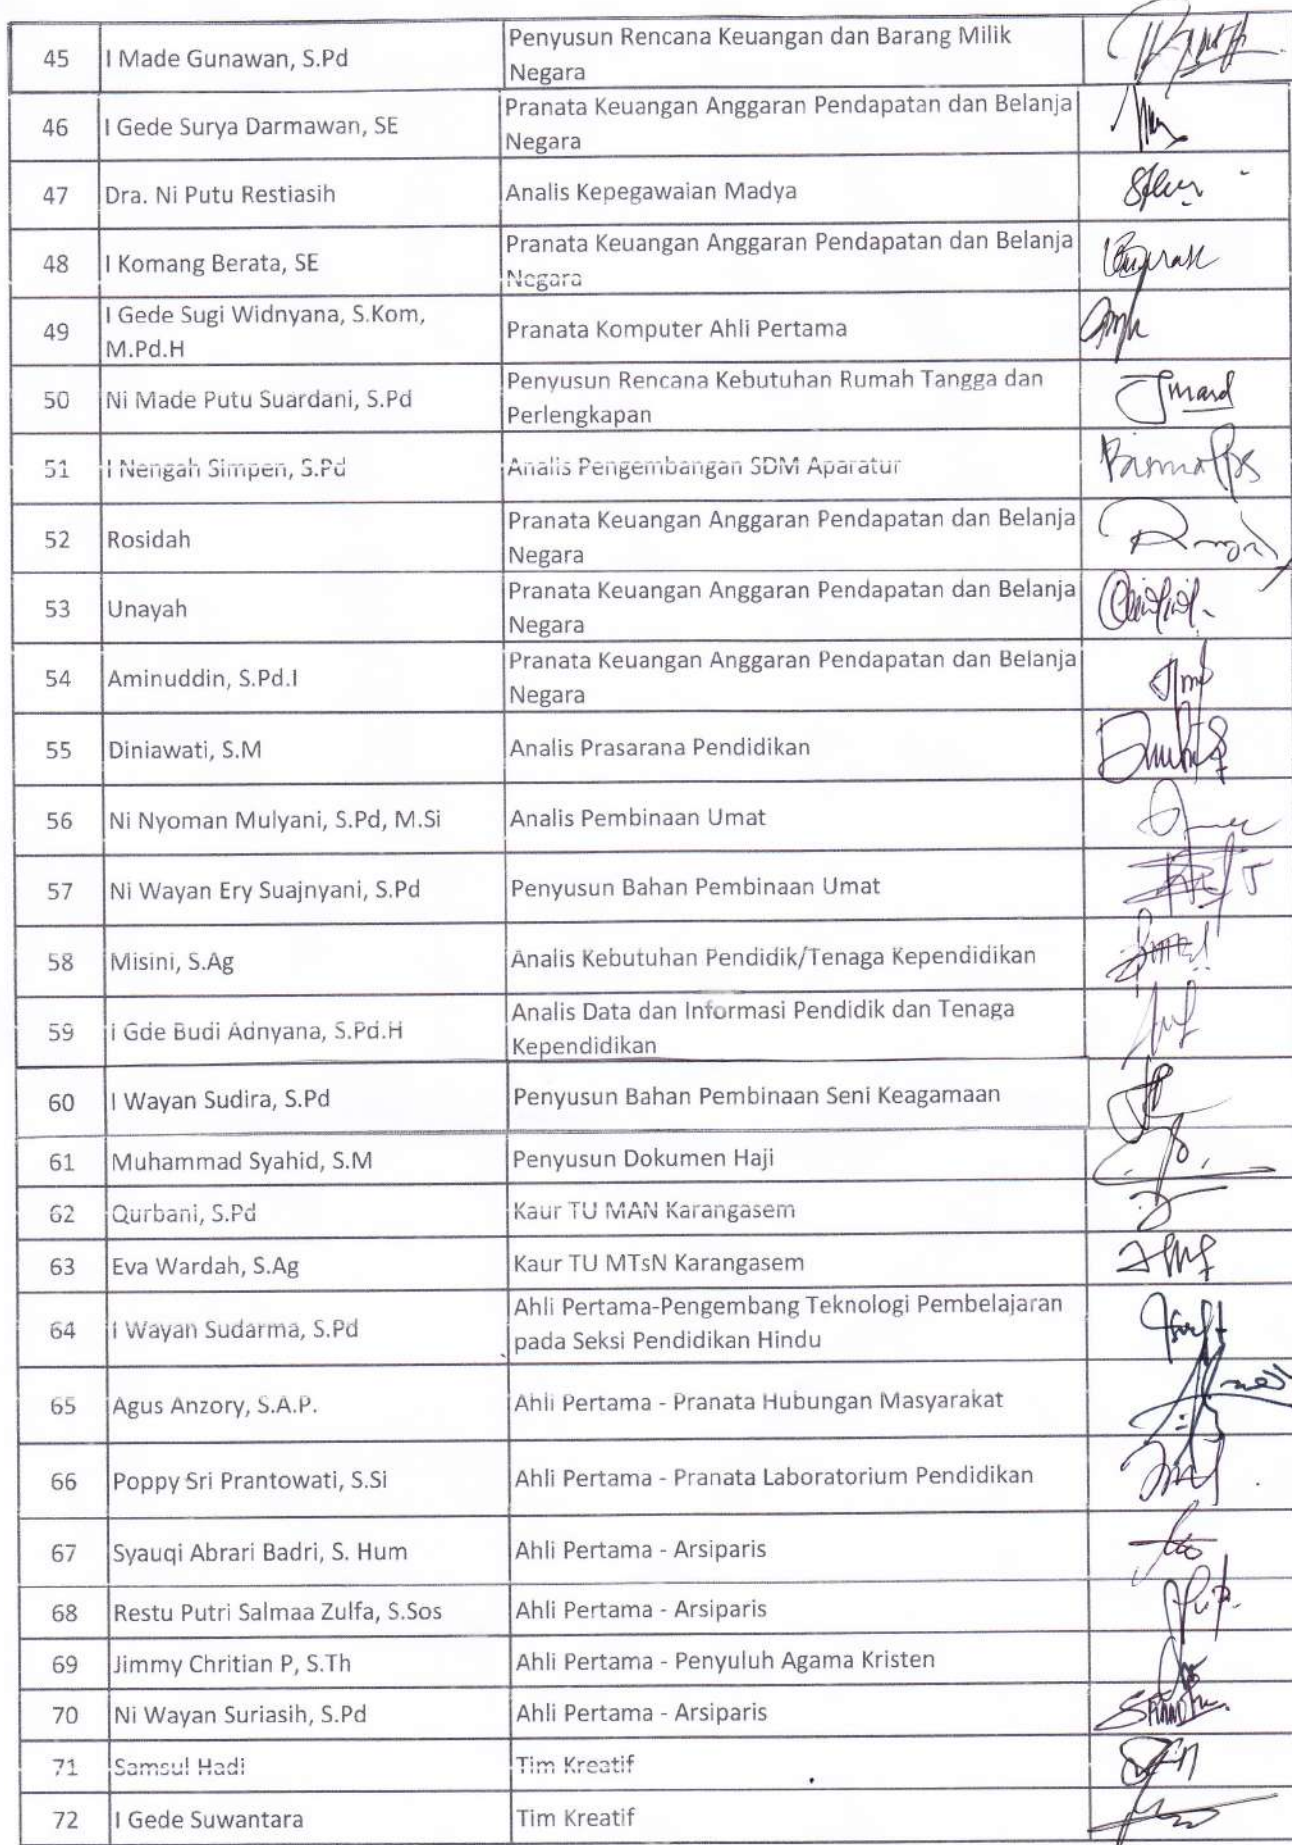 45 I Made Gunawan, S.Pd Penyusun Rencana Keuangan dan Barang Milik
Negara
46 I Gede Surya Darmawan, SE Pranata Keuangan Anggaran Pendapatan dan Belanja
Negara
47 Dra. Ni Putu Restiasih Analis Kepegawaian Madya
48 I Komang Berata, SE Pranata Keuangan Anggaran Pendapatan dan Belanja
Negara
49 I Gede Sugi Widnyana, S.Kom, Pranata Komputer Ahli Pertama
M.Pd.H
50 Ni Made Putu Suardani, S.Pd Penyusun Rencana Kebutuhan Rumah Tangga dan
Perlengkapan
51 I Nengah Simpen, S.Pd Analis Pengembangan SDM Aparatur
52 Rosidah Pranata Keuangan Anggaran Pendapatan dan Belanja
Negara
53 Unayah Pranata Keuangan Anggaran Pendapatan dan Belanja
Negara
54 Aminuddin, S.Pd.I Pranata Keuangan Anggaran Pendapatan dan Belanja
Negara
55 Diniawati, S.M Analis Prasarana Pendidikan
56 Ni Nyoman Mulyani, S.Pd, M.Si Analis Pembinaan Umat
57 Ni Wayan Ery Suajnyani, S.Pd Penyusun Bahan Pembinaan Umat
58 Misini, S.Ag Analis Kebutuhan Pendidik/Tenaga Kependidikan
59 I Gde Budi Adnyana, S.Pd.H Analis Data dan Informasi Pendidik dan Tenaga
Kependidikan
60 I Wayan Sudira, S.Pd Penyusun Bahan Pembinaan Seni Keagamaan
61 Muhammad Syahid, S.M Penyusun Dokumen Haji
62 Qurbani, S.Pd Kaur TU MAN Karangasem
63 Eva Wardah, S.Ag Kaur TU MTsN Karangasem
64 I Wayan Sudarma, S.Pd Ahli Pertama-Pengembang Teknologi Pembelajaran
pada Seksi Pendidikan Hindu
65 Agus Anzory, S.A.P. Ahli Pertama - Pranata Hubungan Masyarakat
66 Poppy Sri Prantowati, S.Si Ahli Pertama - Pranata Laboratorium Pendidikan
67 Syauqi Abrari Badri, S. Hum Ahli Pertama - Arsiparis
68 Restu Putri Salmaa Zulfa, S.Sos Ahli Pertama - Arsiparis
69 Jimmy Chritian P, S.Th Ahli Pertama - Penyuluh Agama Kristen
70 Ni Wayan Suriasih, S.Pd Ahli Pertama - Arsiparis
71 Samsul Hadi Tim Kreatif
72 I Gede Suwantara Tim Kreatif